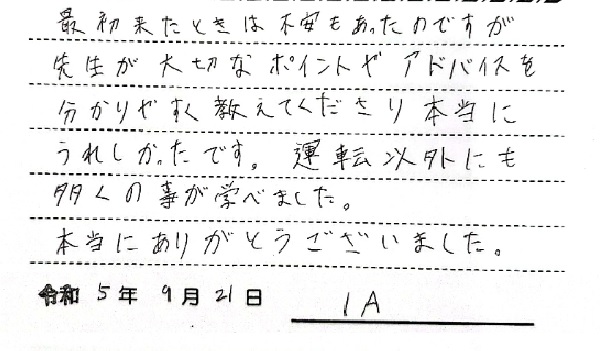 最初来たときは不安もあったのですが
先生が大切なポイントやアドバイスを
分かりやすく教えてくださり本当に
うれしかったです。運転以外にも
多くの事が学べました。
本当にありがとうございました。
令和 5年 9月 21日 IA